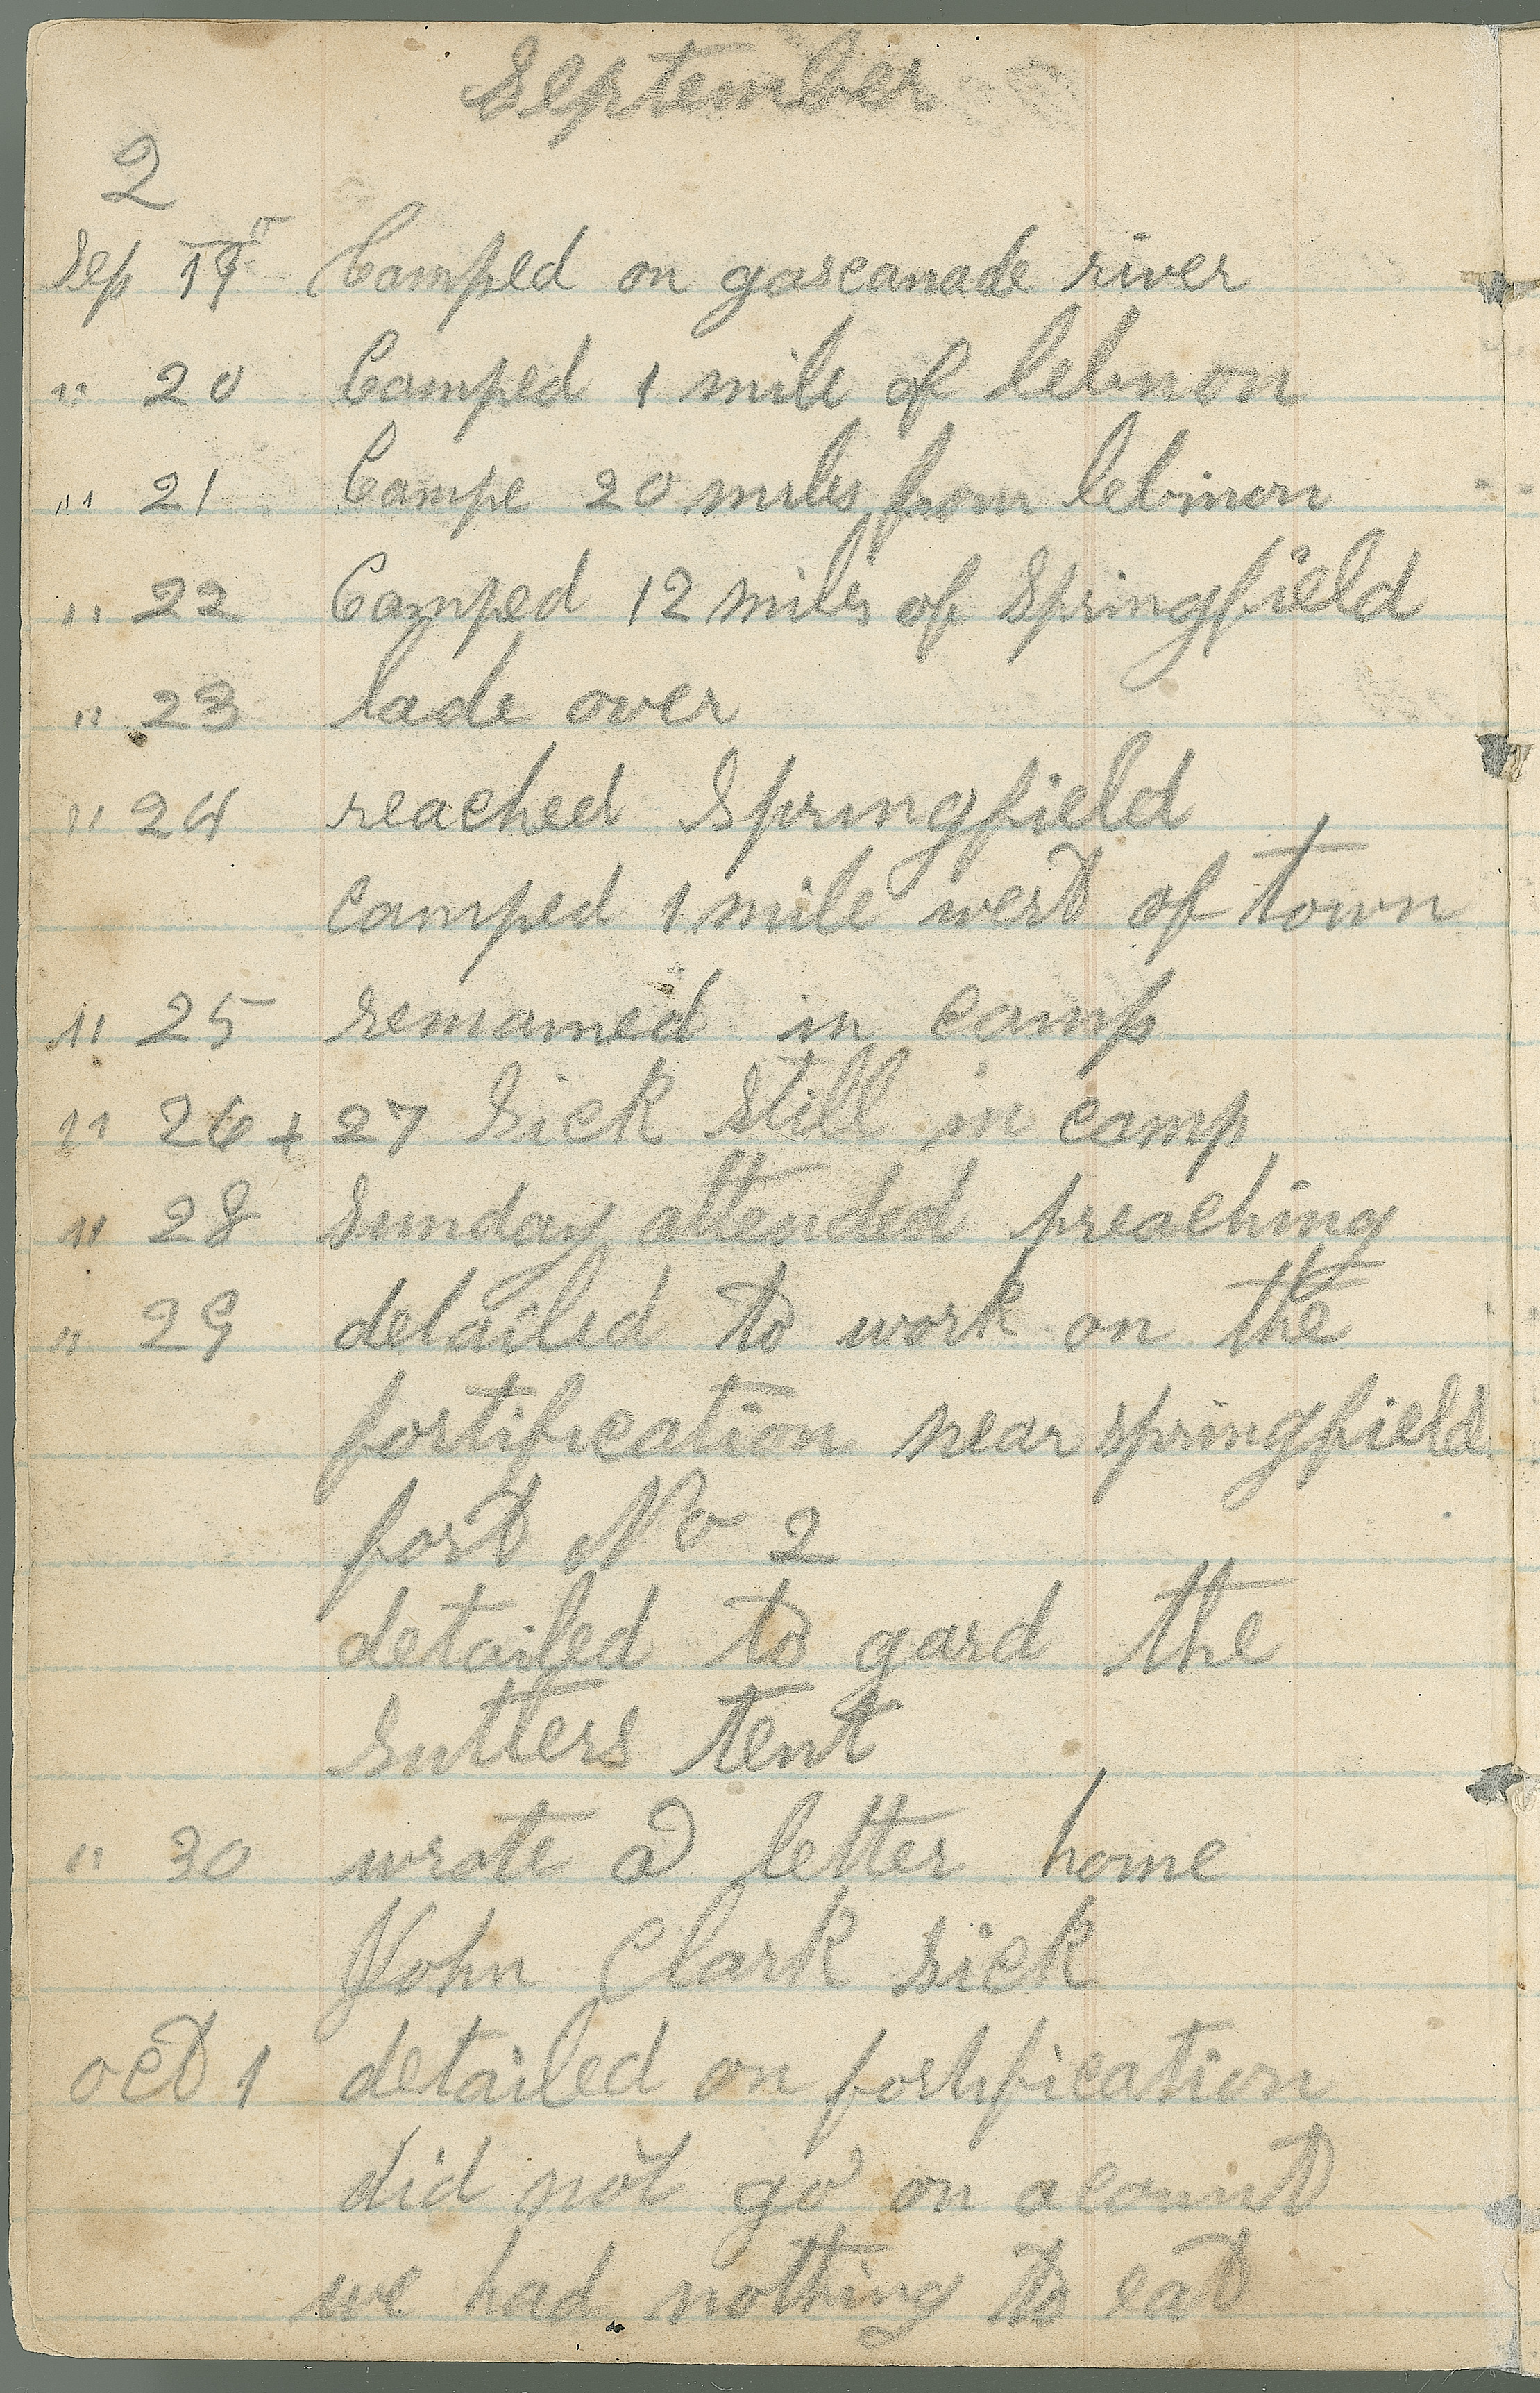 September
2
Sep 19 Camped on gascanade river
" 20 Camped 1 mile of lebnon
" 21 Campe 20 miles from lebinon
" 22 Camped 12 miles of Springfield
" 23 lade over
" 24 reached Springfield
camped 1 mile west of town
" 25 remained in camp
" 26 + 27 Sick Still in camp
" 28 Sunday attended preaching
" 29 detailed to work on the
fortification near springfield
fort No 2
detailed to gard the
Sutlers tent
" 30 wrote a letter home
John Clark sick
oct 1 detailed on fortification
did not go on acount
we had nothing to eat